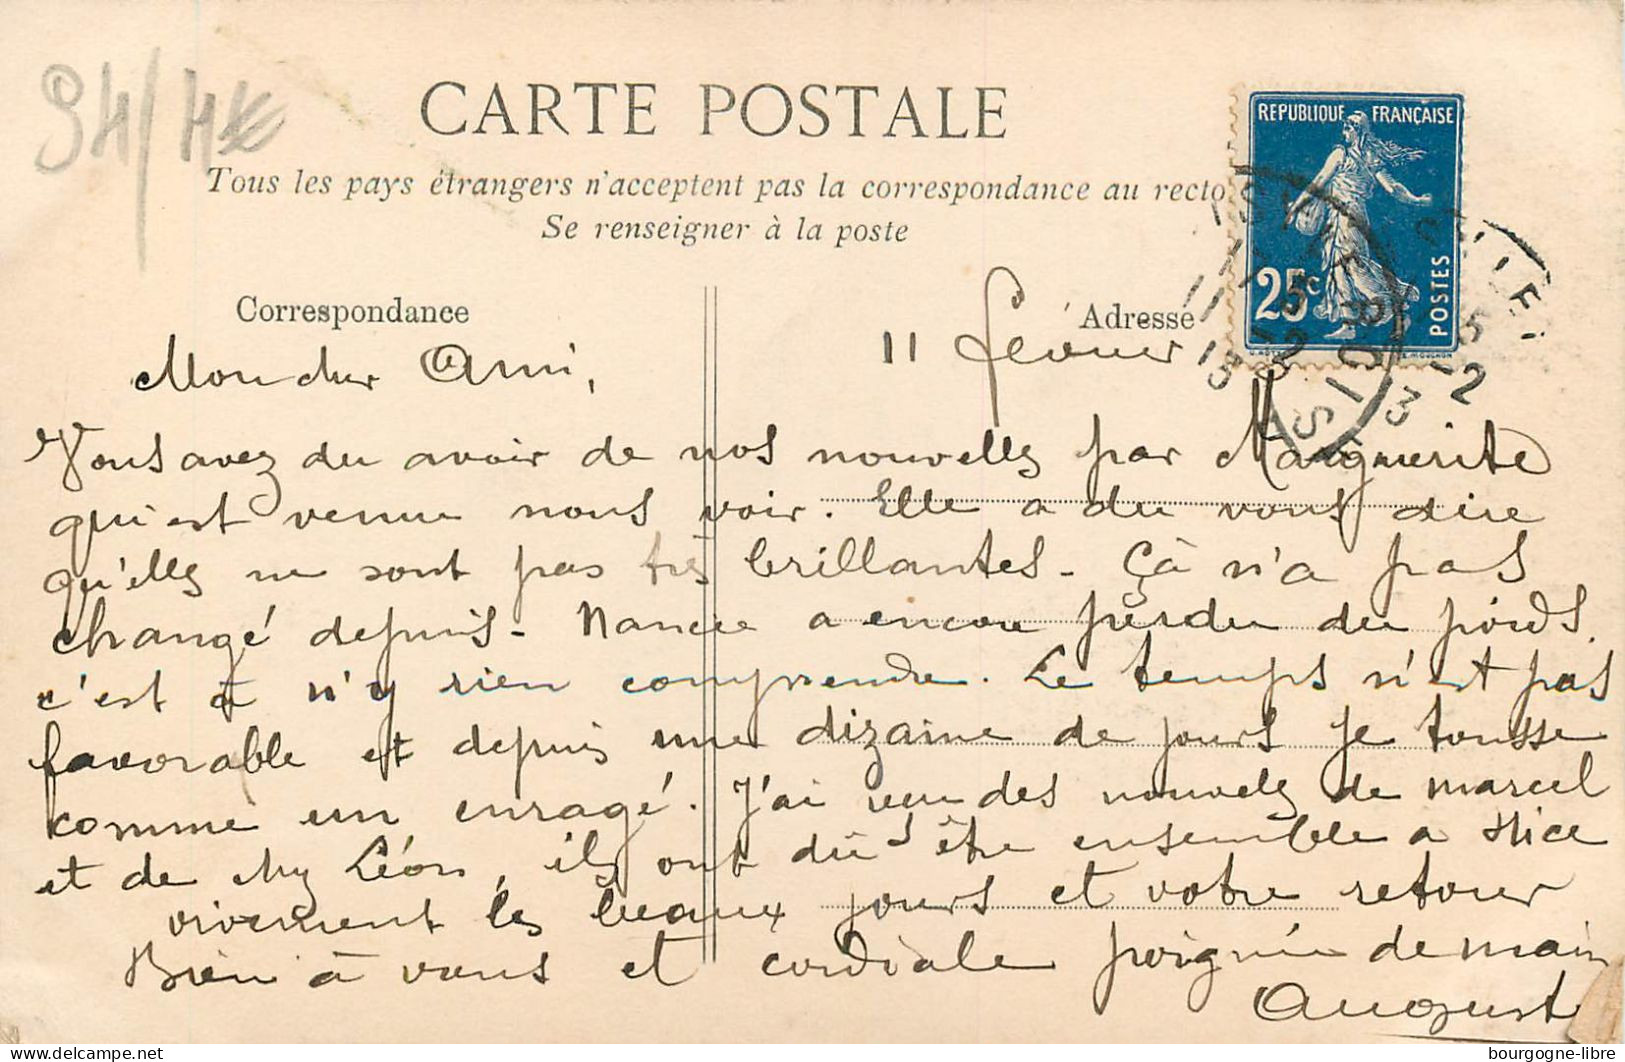 94/4
CARTE POSTALE
Tous les pays étrangers n'acceptent pas la correspondance au recto
Se renseigner à la poste
REPUBLIQUE FRANÇAISE
25c
POSTES
Correspondance
Adresse
11 février
Mon cher Ami,
Vous avez du avoir de nos nouvelles par Marguerite
qui est venue nous voir. Elle a du vous dire
qu'elles ne sont pas très brillantes - Çà n'a pas
changé depuis - Nancie a encore perdu du poids,
c'est à n'y rien comprendre. Le temps n'est pas
favorable et depuis une dizaine de jours je tousse
comme un enragé. J'ai eu des nouvelles de marcel
et de chez Léon, ils ont dû être ensemble a Nice
vivement les beaux jours et votre retour
Bien à vous et cordiale poignée de main
Auguste
bourgogne-libre